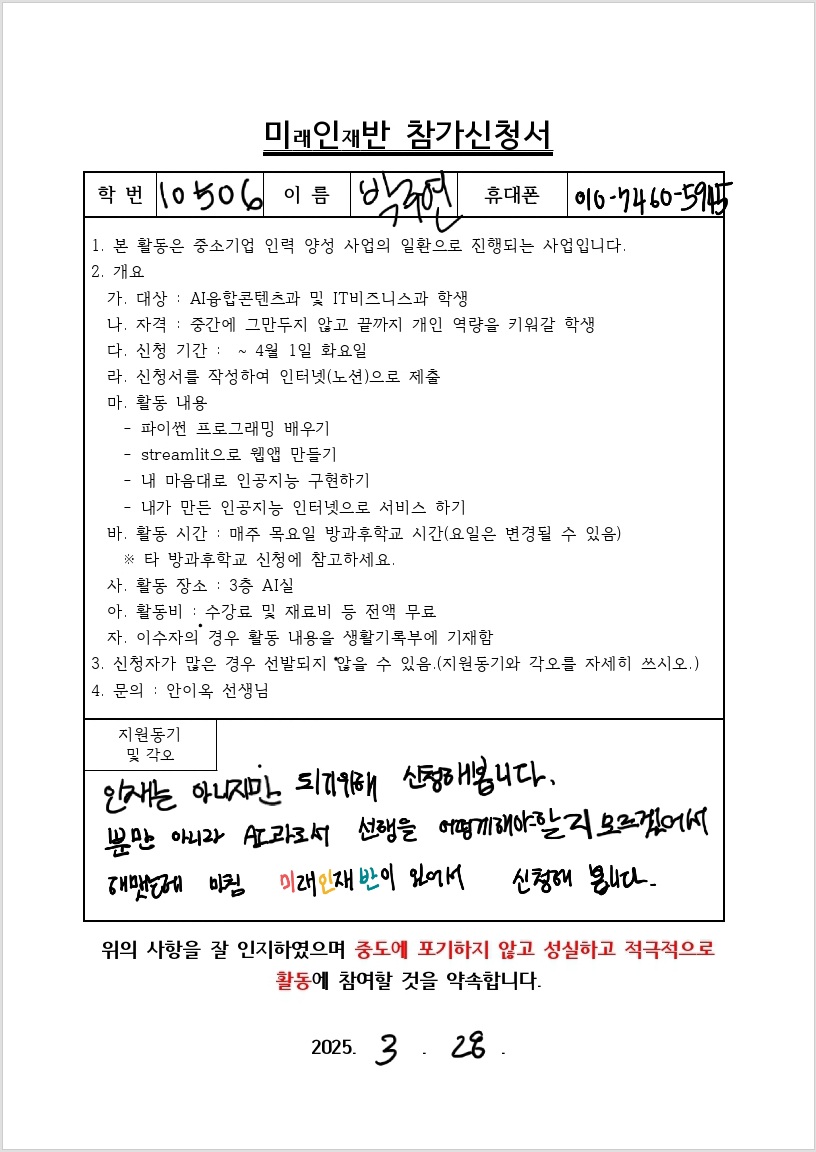 미래인재반 참가신청서
학 번 10506 이 름 박주연 휴대폰 010-7460-5945
1. 본 활동은 중소기업 인력 양성 사업의 일환으로 진행되는 사업입니다.
2. 개요
가. 대상 : AI융합콘텐츠과 및 IT비즈니스과 학생
나. 자격 : 중간에 그만두지 않고 끝까지 개인 역량을 키워갈 학생
다. 신청 기간 : ~ 4월 1일 화요일
라. 신청서를 작성하여 인터넷(노션)으로 제출
마. 활동 내용
- 파이썬 프로그래밍 배우기
- streamlit으로 웹앱 만들기
- 내 마음대로 인공지능 구현하기
- 내가 만든 인공지능 인터넷으로 서비스 하기
바. 활동 시간 : 매주 목요일 방과후학교 시간(요일은 변경될 수 있음)
※ 타 방과후학교 신청에 참고하세요.
사. 활동 장소 : 3층 AI실
아. 활동비 : 수강료 및 재료비 등 전액 무료
자. 이수자의 경우 활동 내용을 생활기록부에 기재함
3. 신청자가 많은 경우 선발되지 않을 수 있음.(지원동기와 각오를 자세히 쓰시오.)
4. 문의 : 안이옥 선생님
지원동기
및 각오
인재는 아니지만 되기위해 신청해봅니다.
뿐만 아니라 AI과로서 선행을 어떻게해야할지 모르겠어서
해맸는데 마침 미래인재반이 있어서 신청해 봅니다.
위의 사항을 잘 인지하였으며 중도에 포기하지 않고 성실하고 적극적으로
활동에 참여할 것을 약속합니다.
2025. 3 . 28 .